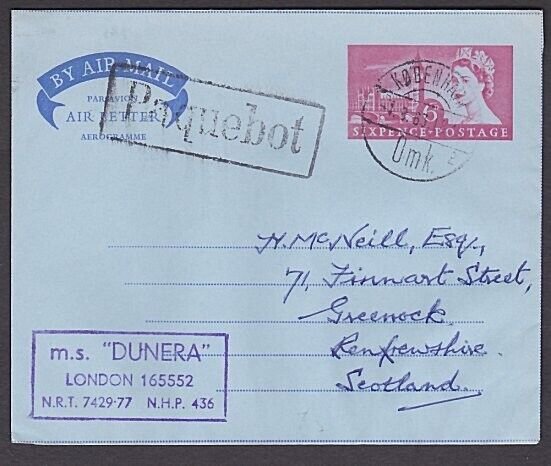 BY AIR MAIL
PAR AVION
AIR LETTER
AEROGRAMME
Paquebot
KØBENHAVN
Omk.
6
SIXPENCE·POSTAGE
H. McNeill, Esq.,
71, Finnart Street,
Greenock
Renfrewshire.
Scotland.
m.s. "DUNERA"
LONDON 165552
N.R.T. 7429·77 N.H.P. 436